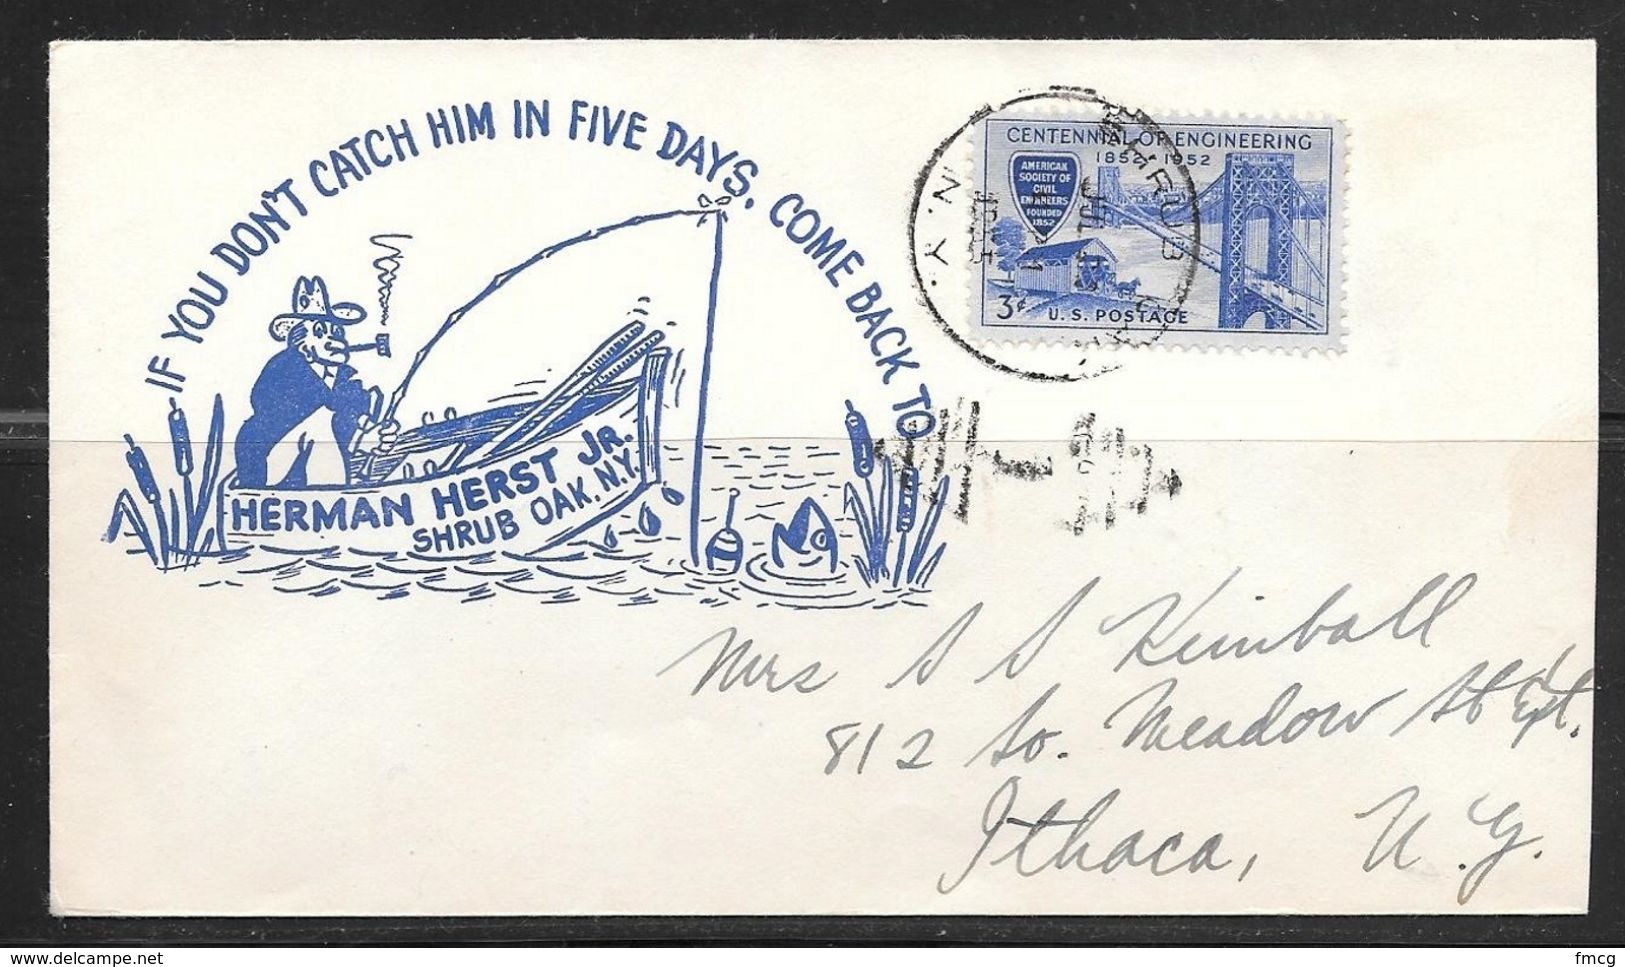 IF YOU DON'T CATCH HIM IN FIVE DAYS, COME BACK TO
HERMAN HERST JR.
SHRUB OAK, N.Y.
CENTENNIAL OF ENGINEERING
1852 1952
AMERICAN
SOCIETY OF
CIVIL
ENGINEERS
FOUNDED
1852
3¢ U.S. POSTAGE
SHRUB
N.Y.
Mrs S S Kimball
812 So. Meadow St Ext.
Ithaca, N.Y.
www.delcampe.net
fmcg